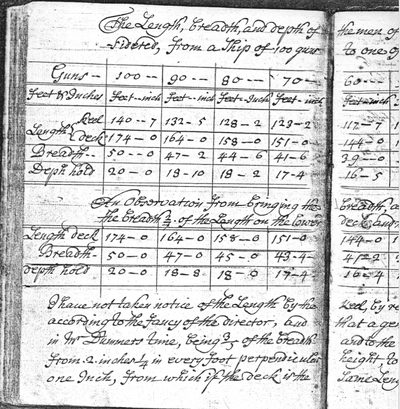 The Length, breadth, and depth of
sidered, from a Ship of 100 guns
Guns -- 100 -- 90 -- 80 -- 70 --
Feet & Inches Feet--inch Feet--inch Feet--Inch Feet--inch
Length keel 140--7 132--5 128--2 123--2
deck 174--0 164--0 158--0 151--0
Breadth-- 50--0 47--2 44--6 41--6
Deph hold 20--0 18-10 18--2 17-4
An Observation from bringing the
the breadth 2/7 of the Length on the lower
Length deck 174-0 164-0 158-0 151-0
Breadth- 50--0 47-0 45-0 43-4
depth hold 20--0 18-8 18-0 17-4
I have not taken notice of the Length by the
according to the fancy of the director, but
in Mr Dummers time, being of the breadth
From 2 inches 1/4 in every foot perpendicular
one Inch, from which if the deck is the
the men of
to one of
60--
Feet-inch
117-7
144-0
39-0
16-5
breadth, a
deck, and
144-0
41-2
16-4
keel, by re
that a gen
and to the
height to
same Leng